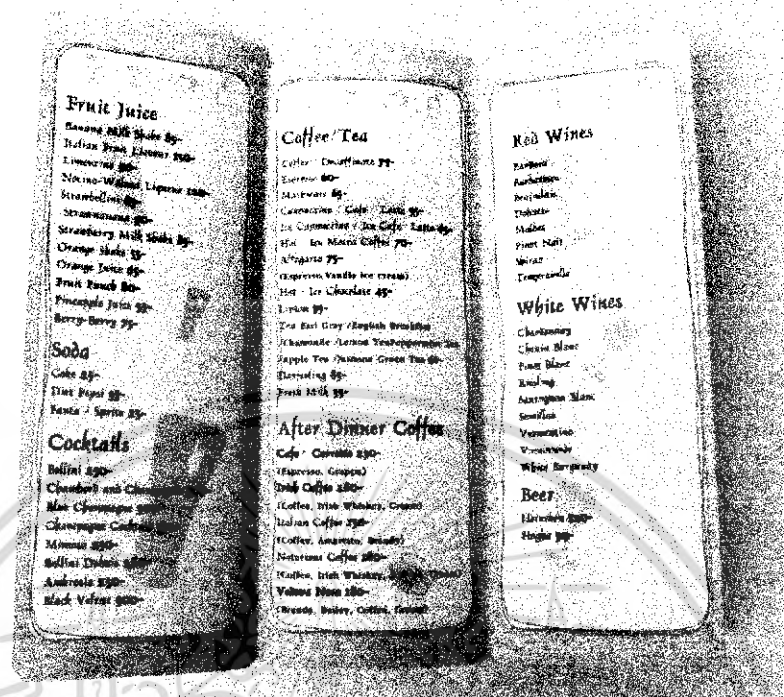 Fruit Juice
Banana Milk Shake 85-
Italian Fruit Liqueur 150-
Limoncino 90-
Nocino-Walnut Liqueur
Strawbellini
Strawberry Milk Shake 85-
Orange Shake 55-
Orange Juice 65-
Fruit Punch 80-
Pineapple Juice 55-
Berry-Berry 75-
Soda
Coke 25-
Diet Pepsi 35-
Fanta / Sprite 25-
Cocktails
Bellini 250-
Chambord and
Blue Champagne
Champagne
Mimosa 250-
Bellini
Ambrosia 250-
Black Velvet 300-
Coffee/Tea
Coffee / Decaffinate 75-
Espresso 60-
65-
Cappuccino / Cafe / Latte 55-
Ice Cappuccino / Ice Cafe / Latte 65-
Hot / Ice Mocca Coffee 70-
Affogato 75-
(Espresso, Vanilla ice cream)
Hot / Ice Chocolate 45-
Lipton 55-
Tea Earl Grey /English Breakfast
/Chamomile /Lemon Tea/Peppermint Tea
/Apple Tea /Jasmine Green Tea 60-
Darjeeling 65-
Fresh Milk 55-
After Dinner Coffee
Cafe / Corretto 230-
(Espresso, Grappa)
Irish Coffee 280-
(Coffee, Irish Whiskey, Cream)
Italian Coffee 250-
(Coffee, Amaretto, Brandy)
Notorious Coffee 280-
(Coffee, Irish Whiskey,
Velvet Nose 280-
(Brandy, Bailey, Coffee, Cream)
Red Wines
Barbera
Beaujolais
Dolcetto
Malbec
Pinot Noir
Shiraz
Tempranillo
White Wines
Chardonnay
Chenin Blanc
Pinot Blanc
Riesling
Sauvignon Blanc
Semillon
Vermentino
White Burgundy
Beer
Heineken